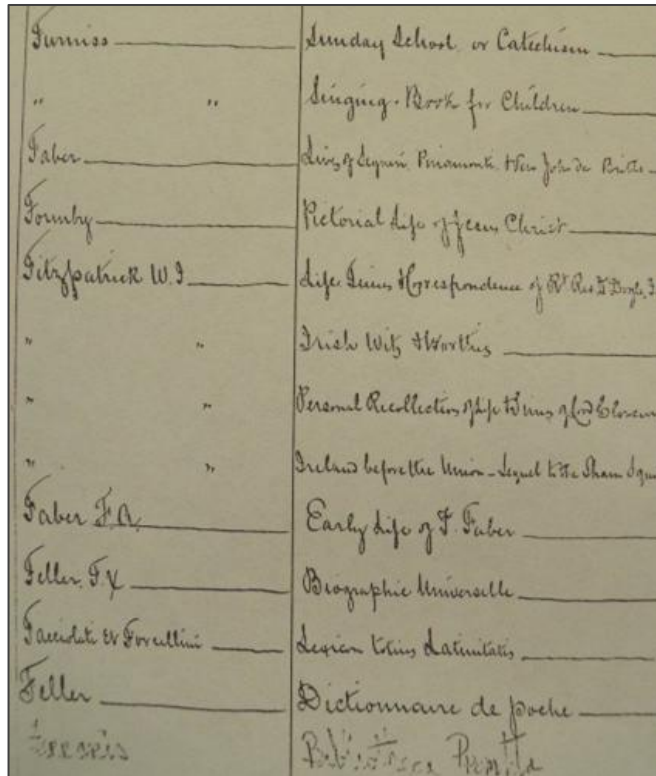 Furniss Sunday School or Catechism
" " Singing-Book for Children
Faber Lives of Segneri, Pinamonti & Ven John de Britto
Formby Pictorial Life of Jesus Christ
Fitzpatrick W.J Life Times & Correspondence of Rt Rev. Dr Doyle,
" " Irish Wits & Worthies
" " Personal Recollections of Life & Times of Lord Cloncur
" " Ireland before the Union - Sequel to the Sham Squi
Faber F.A. Early Life of F. Faber
Feller, F.X Biographie Universelle
Facciolati et Forcellini Lexicon totius Latinitatis
Feller Dictionnaire de poche
Ferraris Bibliotheca Prompta